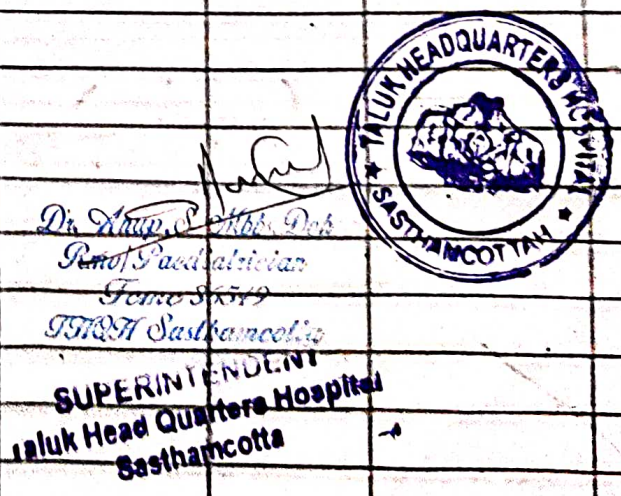 TALUK HEADQUARTERS HOSPITAL
★ SASTHAMCOTTAH ★
Dr. Anup. S Mbbs. Dch
Rmo/Paediatrician
Tcmc 86549
THQH Sasthamcotta
SUPERINTENDENT
Taluk Head Quarters Hospital
Sasthamcotta